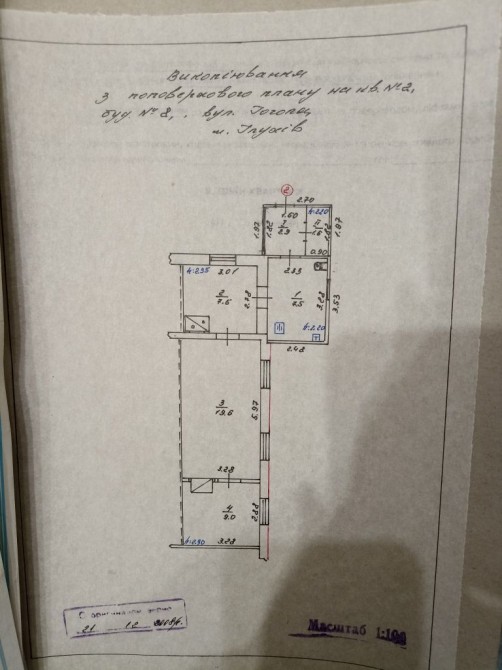 Викопіювання
з поповерхового плану на кв. №2,
буд. №8, вул. Гоголя,
м. Глухів
2
2.70
1.60
h:2.20
1.97
1.82
2.9
1.6
1.82
1.97
0.90
h:2.35
2.01
2.33
2
7.6
2.78
1
8.5
3.28
3.53
h:2.20
2.48
3
19.6
5.97
3.28
4
9.0
2.88
h:2.90
3.28
З оригіналом вірно
21
Масштаб 1:100